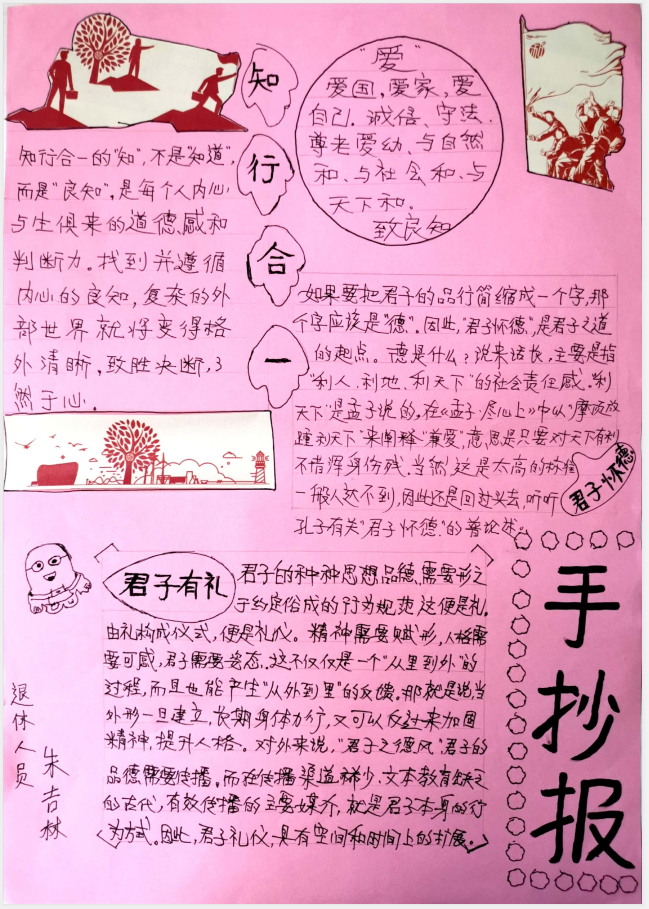 知
行
合
一
知行合一的"知"，不是"知道"，
而是"良知"，是每个人内心
与生俱来的道德感和
判断力。找到并遵循
内心的良知，复杂的外
部世界就将变得格
外清晰，致胜决断，了
然于心。
"爱"
爱国，爱家，爱
自己．诚信、守法．
尊老爱幼、与自然
和、与社会和、与
天下和．
致良知
如果要把君子的品行简缩成一个字，那
个字应该是"德"。因此，"君子怀德"，是君子之道
的起点。德是什么？说来话长，主要是指
"利人、利地、利天下"的社会责任感。"利
天下"是孟子说的，在《孟子·尽心上》中以"摩顶放
踵利天下"来阐释"兼爱"，意思是只要对天下有利
不惜浑身伤残。当然，这是太高的标准
一般人达不到，因此还是回过头去，听听
孔子有关"君子怀德"的普论述。
君子怀德
君子有礼
君子的种种思想品德、需要形之
于约定俗成的行为规范这便是礼．
由礼构成仪式，便是礼仪。精神需要赋形，人格需
要可感，君子需要姿态．这不仅仅是一个"从里到外"的
过程，而且也能产生"从外到里"的反馈。那就是说当
外形一旦建立，长期身体力行，又可以反过来加固
精神，提升人格。对外来说，"君子之德风"君子的
品德需要传播。而在传播渠道稀少、文本教育缺乏
的古代，有效传播的主要媒介，就是君子本身的行
为方式。因此，君子礼仪，具有空间和时间上的扩展。
退休人员
朱吉林
手抄报